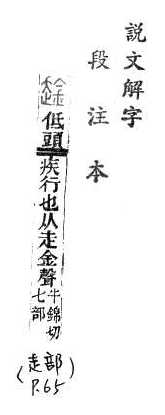 說文解字
段注本
趛低頭疾行也从走金聲牛錦切七部
(走部)
P.65